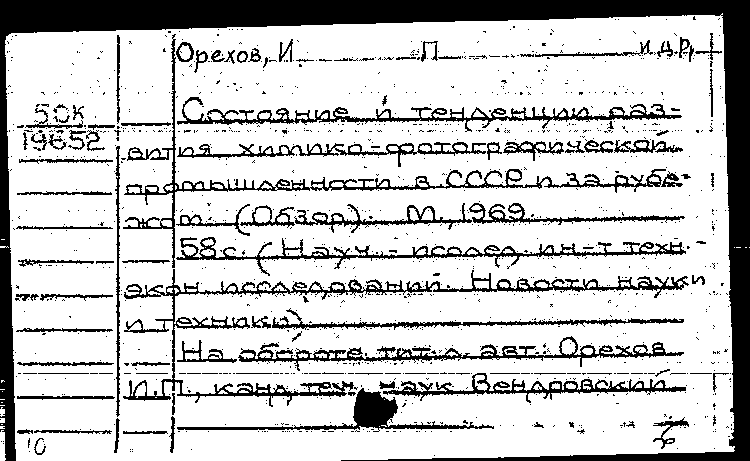 Орехов, И П и др.
50к
19652
Состояние и тенденции раз-
вития химико-фотографической
промышленности в СССР и за рубе-
жом. (Обзор). М., 1969.
58 с. (Науч.-исслед. ин-т техн.-
экон. исследований. Новости науки
и техники)
На обороте тит. л. авт.: Орехов
И.П., канд. тех. наук Вендровский
10